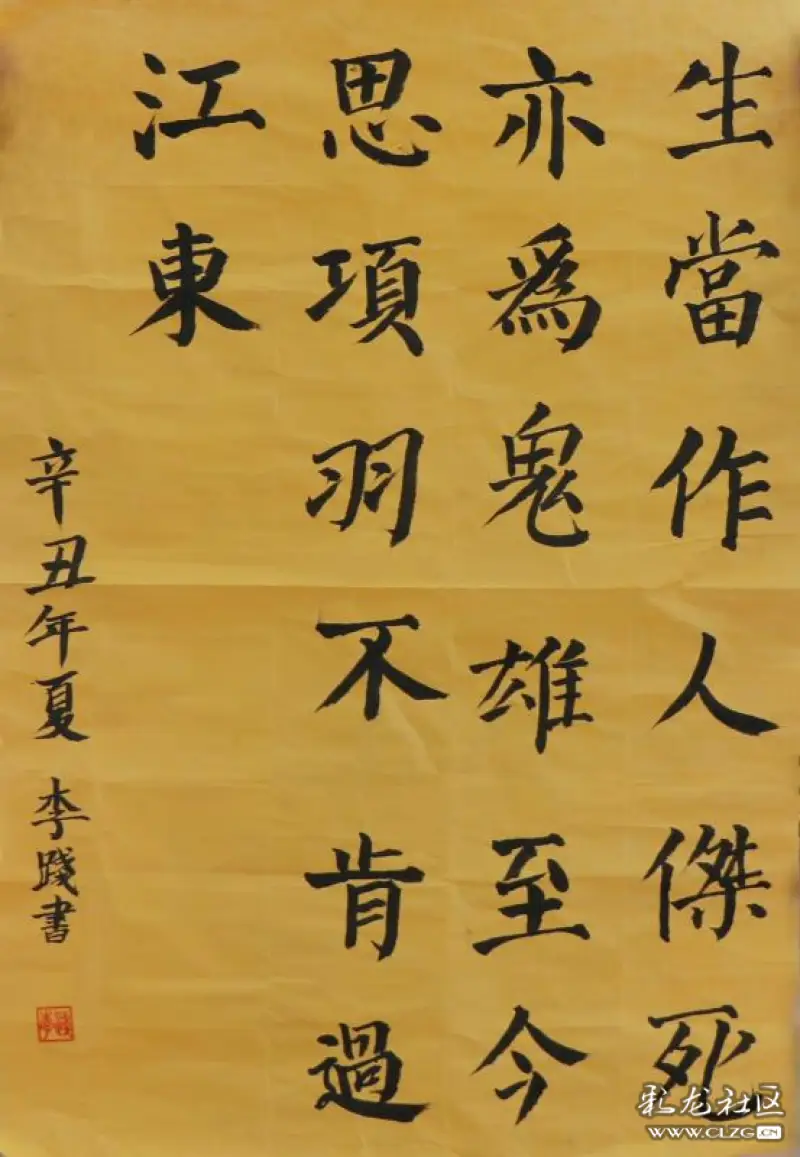 生當作人傑死
亦爲鬼雄至今
思項羽不肯過
江東
辛丑年夏 李踐書
彩龙社区
WWW.CLZG.CN